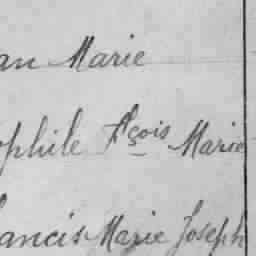 an Marie
ophile Fçois Marie
ancis Marie Joseph